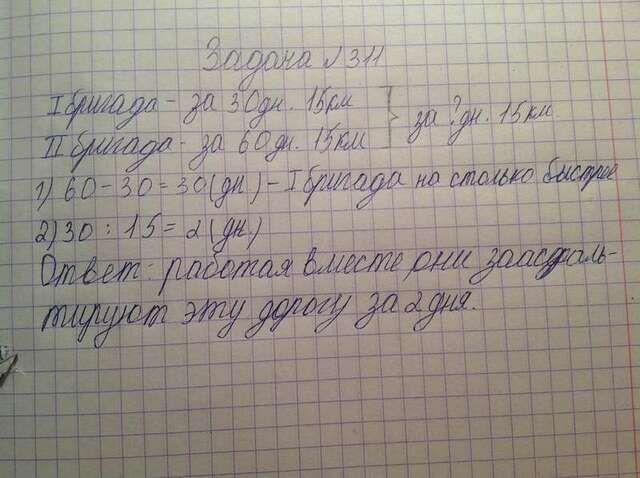 Задача №311
I бригада - за 30дн. 15км
II бригада - за 60дн. 15км } за ? дн. 15км.
1) 60 - 30 = 30 (дн.) - I бригада на столько быстрее
2) 30 : 15 = 2 (дн.)
Ответ: работая вместе они заасфаль-
тируют эту дорогу за 2 дня.